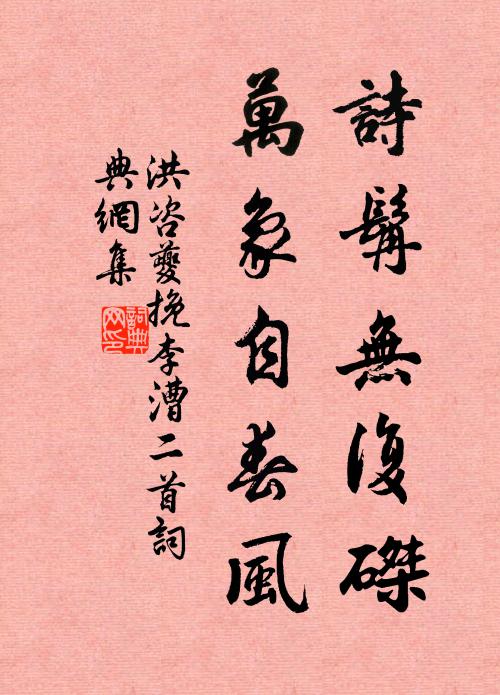 詩髯無復磔
萬象自春風
洪咨夔挽李漕二首詞
典網集
詞典網印